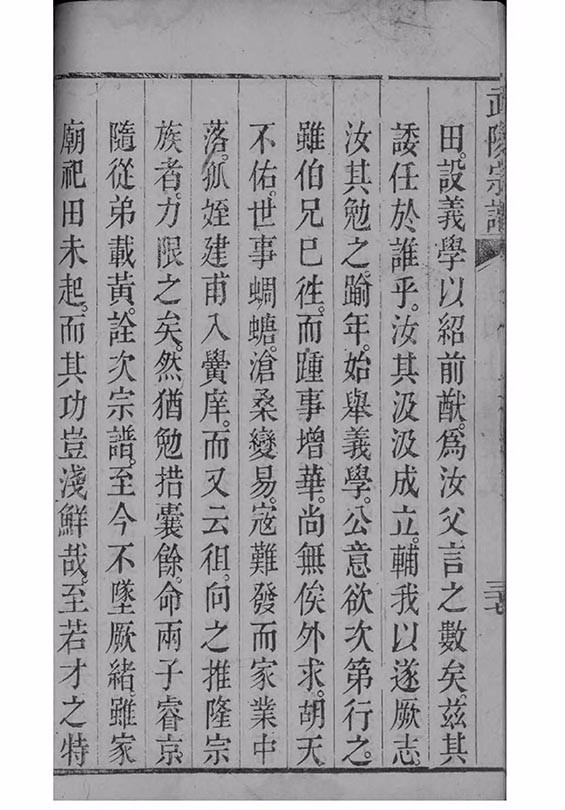 武陵宗譜
三七
田。設義學以紹前猷。爲汝父言之數矣。茲其
諉任於誰乎。汝其汲汲成立。輔我以遂厥志。
汝其勉之。踰年。始舉義學。公意欲次第行之。
雖伯兄已徃。而踵事增華。尚無俟外求。胡天
不佑。世事蜩螗。滄桑變易。寇難發而家業中
落。孤姪建甫入黌庠。而又云徂。向之推隆宗
族者。力限之矣。然猶勉措囊餘。命兩子睿京。
隨從弟載黃。詮次宗譜。至今不墜厥緒。雖家
廟祀田未起。而其功豈淺鮮哉。至若才之特